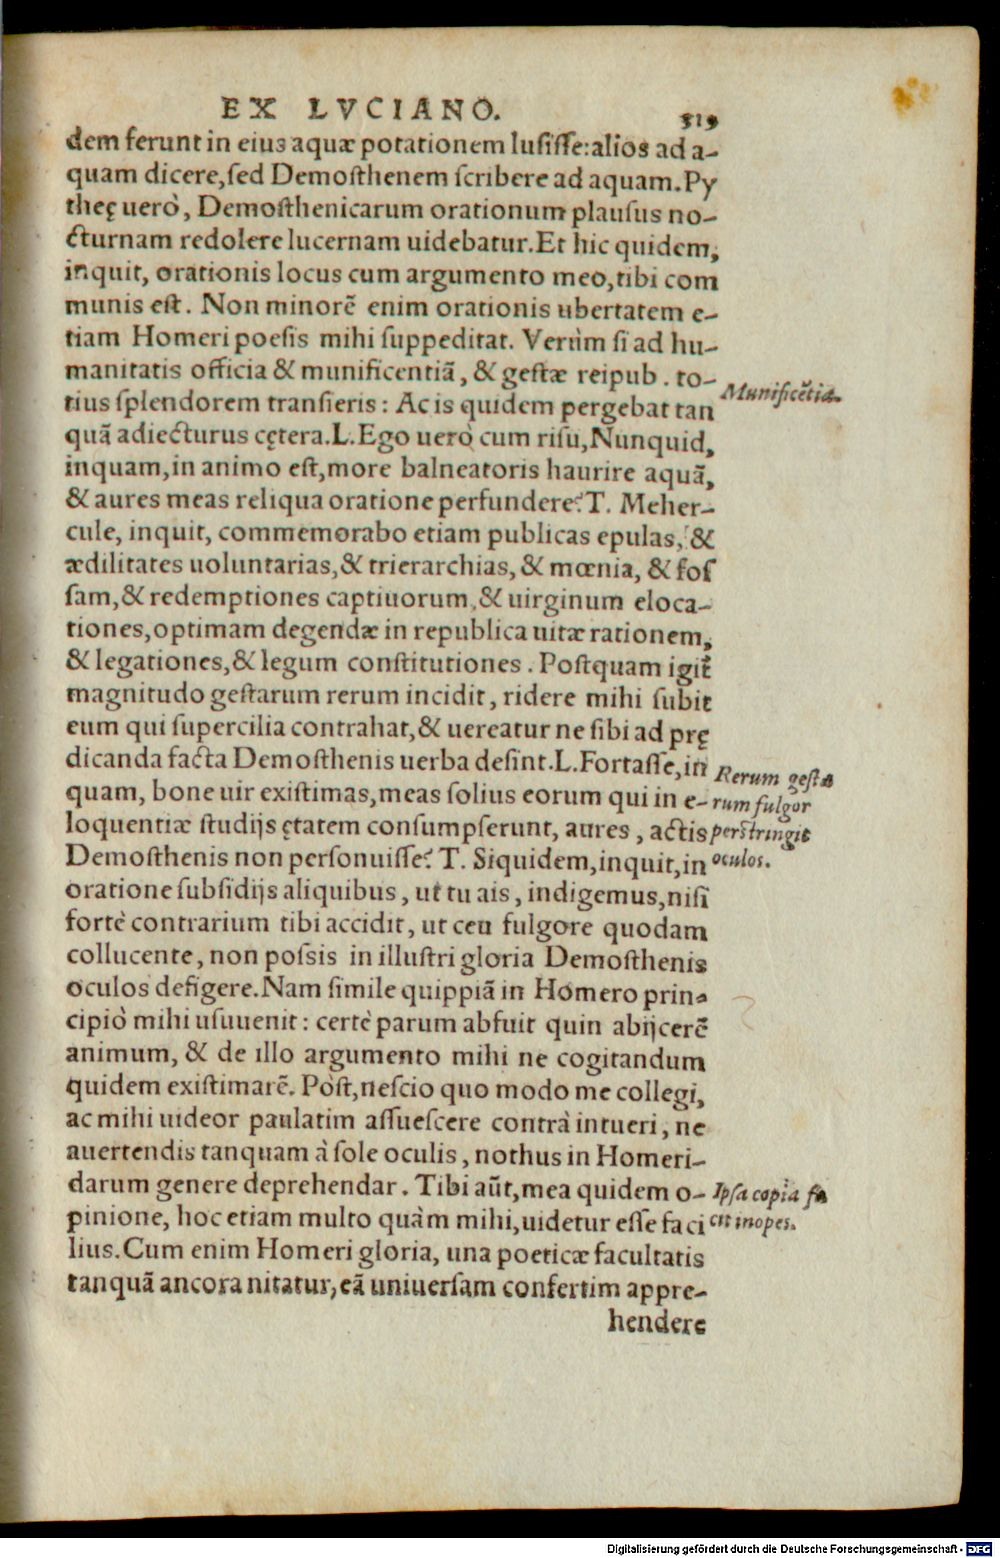 EX LVCIANO. 519
dem ferunt in eius aquæ potationem lusisse: alios ad a-
quam dicere, sed Demosthenem scribere ad aquam. Py
theę uerò, Demosthenicarum orationum plausus no-
cturnam redolere lucernam uidebatur. Et hic quidem,
inquit, orationis locus cum argumento meo, tibi com
munis est. Non minorẽ enim orationis ubertatem e-
tiam Homeri poesis mihi suppeditat. Verùm si ad hu-
manitatis officia & munificentiã, & gestæ reipub. to-
Munificẽtia.
tius splendorem transieris: Ac is quidem pergebat tan
quã adiecturus cętera. L. Ego uerò cum risu, Nunquid,
inquam, in animo est, more balneatoris haurire aquã,
& aures meas reliqua oratione perfundere? T. Meher-
cule, inquit, commemorabo etiam publicas epulas, &
ædilitates uoluntarias, & trierarchias, & mœnia, & fos
sam, & redemptiones captiuorum, & uirginum eloca-
tiones, optimam degendæ in republica uitæ rationem,
& legationes, & legum constitutiones. Postquam igit̃
magnitudo gestarum rerum incidit, ridere mihi subit
eum qui supercilia contrahat, & uereatur ne sibi ad prę
dicanda facta Demosthenis uerba desint. L. Fortasse, in
Rerum gesta
quam, bone uir existimas, meas solius eorum qui in e-
rum fulgor
loquentiæ studijs ętatem consumpserunt, aures, actis
perstringit
Demosthenis non personuisse? T. Siquidem, inquit, in
oculos.
oratione subsidijs aliquibus, ut tu ais, indigemus, nisi
fortè contrarium tibi accidit, ut ceu fulgore quodam
collucente, non possis in illustri gloria Demosthenis
oculos defigere. Nam simile quippiã in Homero prin-
cipiò mihi usuuenit: certè parum abfuit quin abijcerẽ
animum, & de illo argumento mihi ne cogitandum
quidem existimarẽ. Pòst, nescio quo modo me collegi,
ac mihi uideor paulatim assuescere contrà intueri, ne
auertendis tanquam à sole oculis, nothus in Homeri-
darum genere deprehendar. Tibi aũt, mea quidem o-
Ipsa copia fa
pinione, hoc etiam multo quàm mihi, uidetur esse faci
cit inopes.
lius. Cum enim Homeri gloria, una poeticæ facultatis
tanquã ancora nitatur, eã uniuersam confertim appre-
hendere
Digitalisierung gefördert durch die Deutsche Forschungsgemeinschaft - DFG